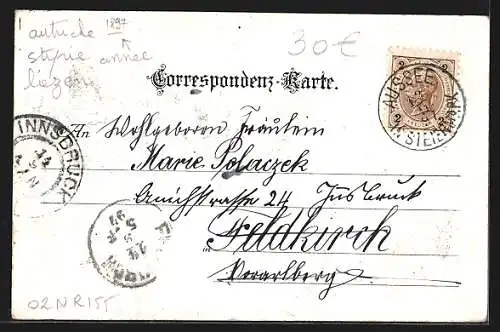 autriche 1897
styrie année
liezen
30€
Correspondenz-Karte.
AUSSEE
STEIERMARK
2 2
INNSBRUCK
14
An Wohlgeboren Fräulein
Marie Polaczek
Amichstrasse 24 Insbruck
in Feldkirch
Vorarlberg
97
02NR155